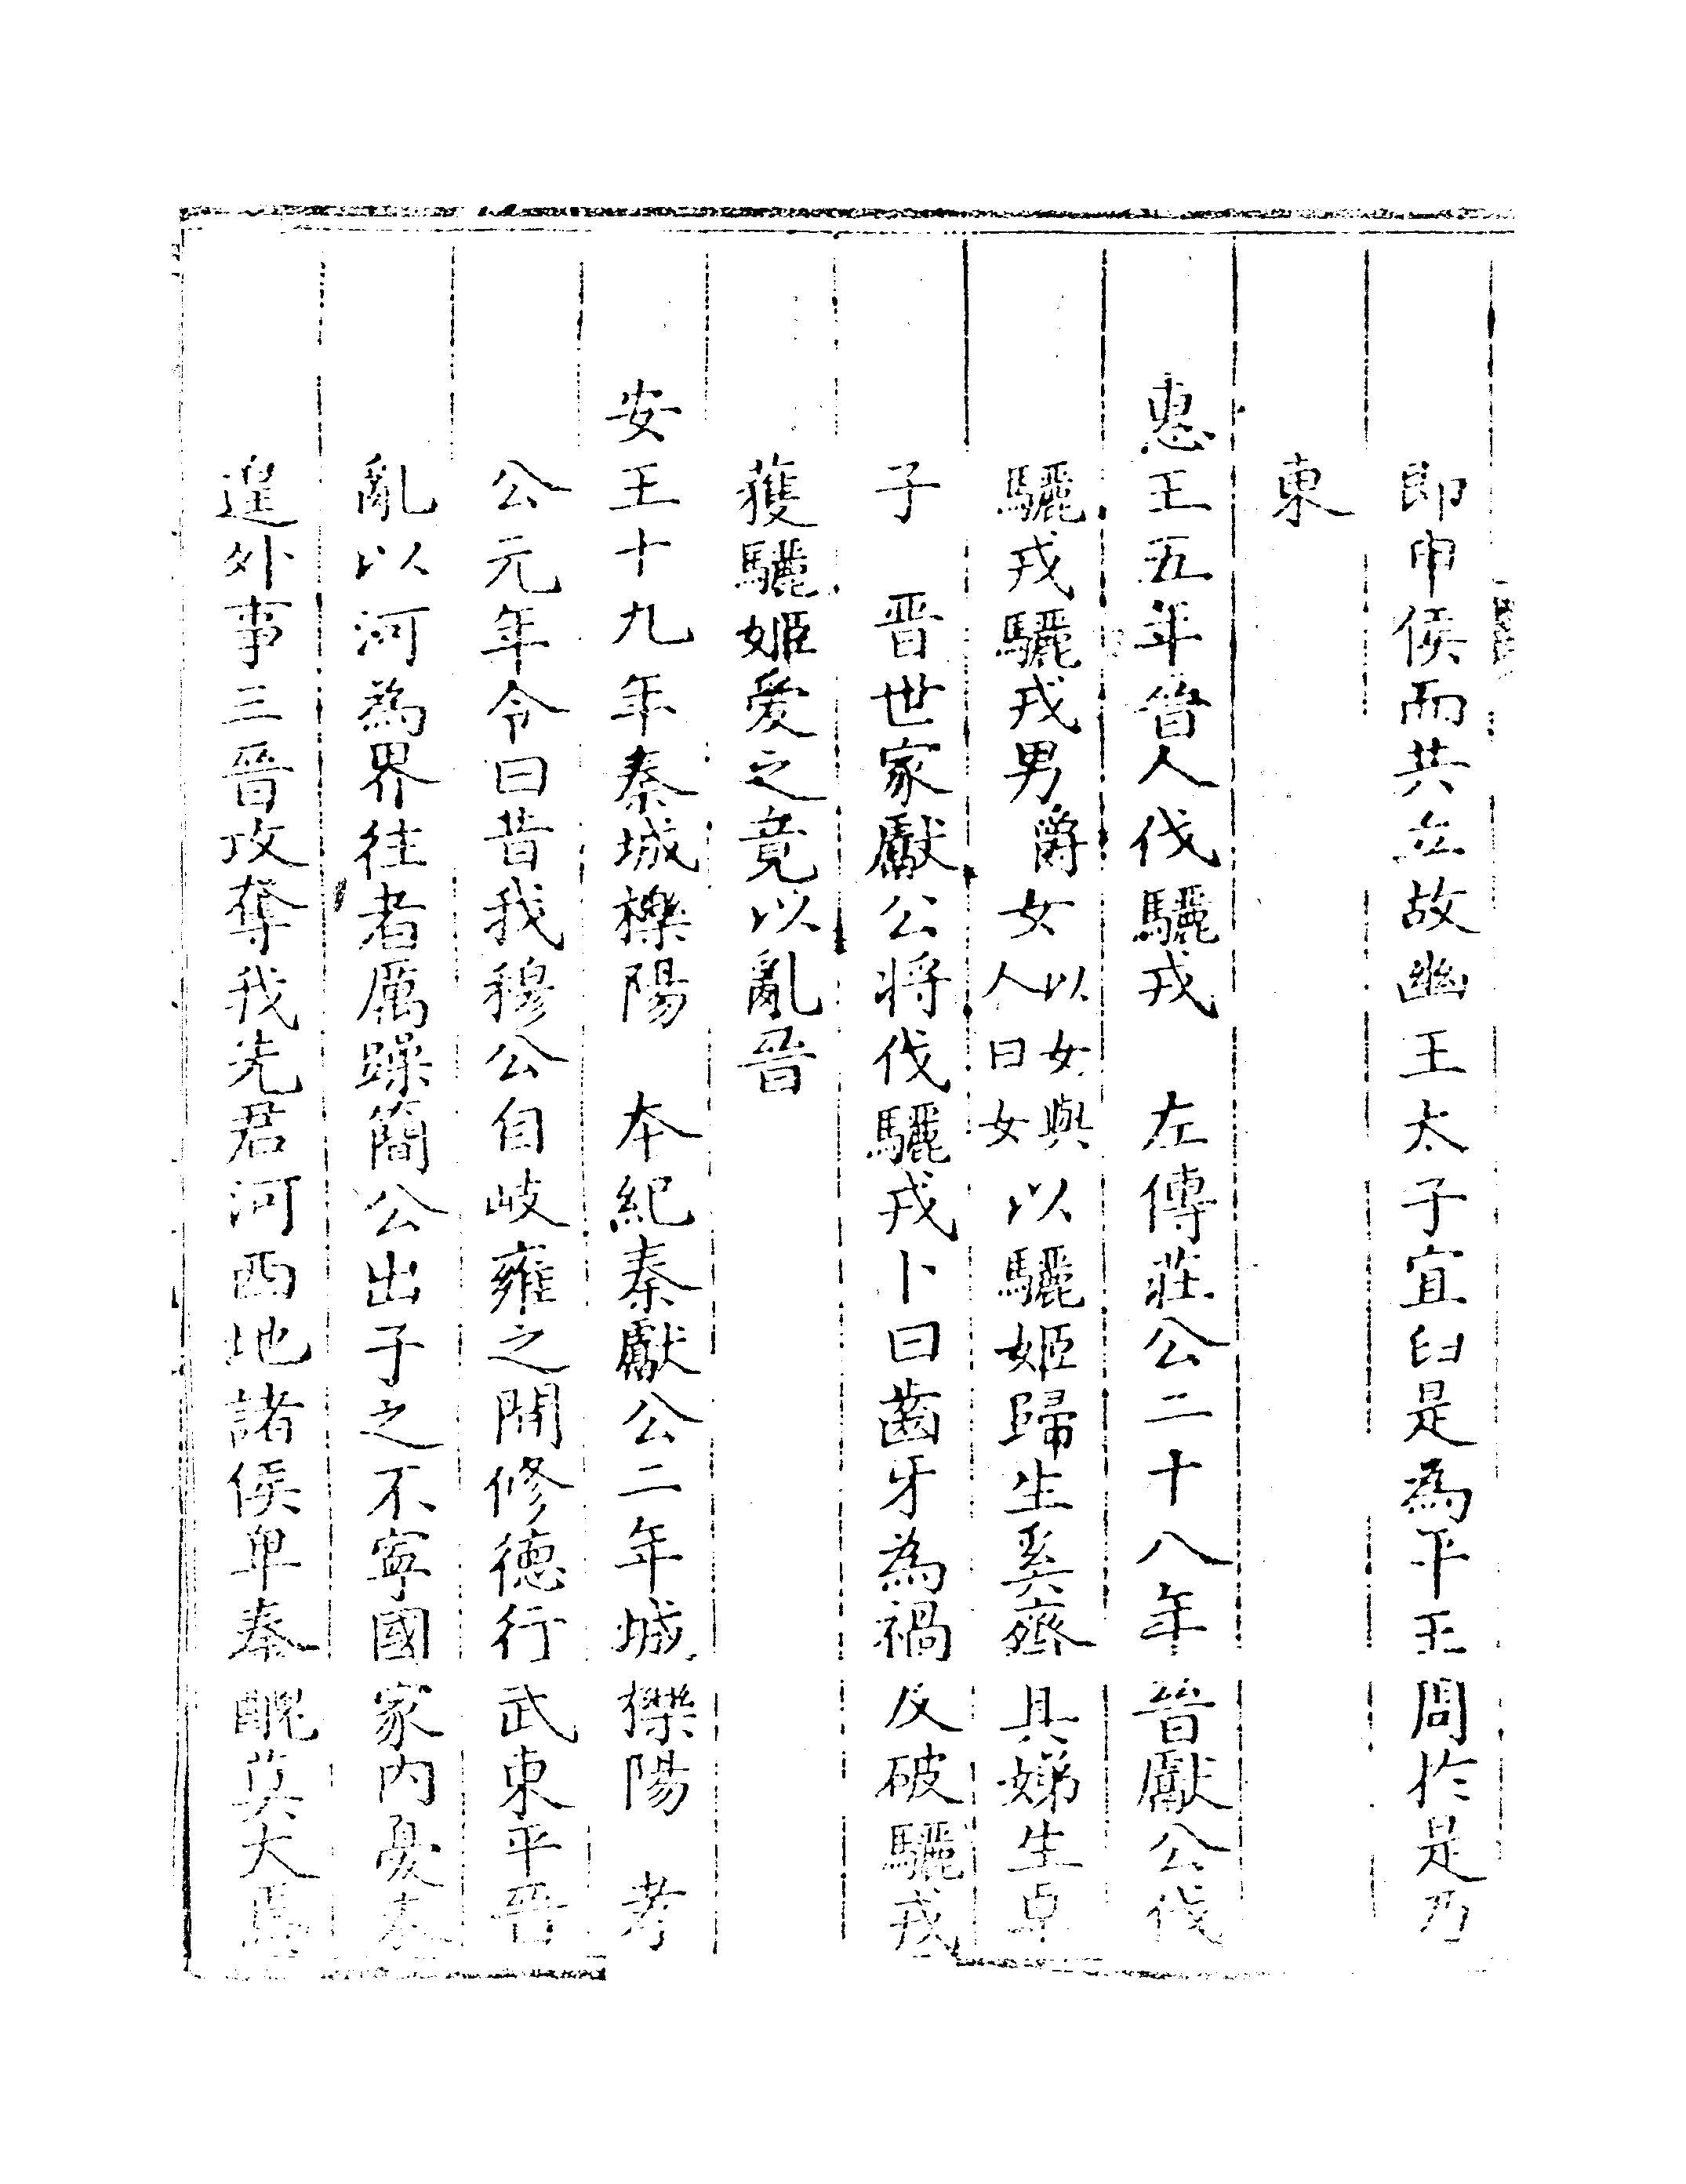 即申侯而共立故幽王太子宜臼是為平王周於是乃
東
惠王五年晉人伐驪戎　左傳莊公二十八年晉獻公伐
驪戎驪戎男爵女以女與人曰女以驪姬歸生奚齊其娣生卓
子　晋世家獻公將伐驪戎卜曰齒牙為禍反破驪戎
獲驪姬愛之竟以亂晋
安王十九年秦城櫟陽　本紀秦獻公二年城櫟陽　孝
公元年令曰昔我穆公自岐雍之間修德行武東平晋
亂以河為界往者厲躁簡公出子之不寧國家内憂未
遑外事三晋攻奪我先君河西地諸侯卑秦醜莫大焉